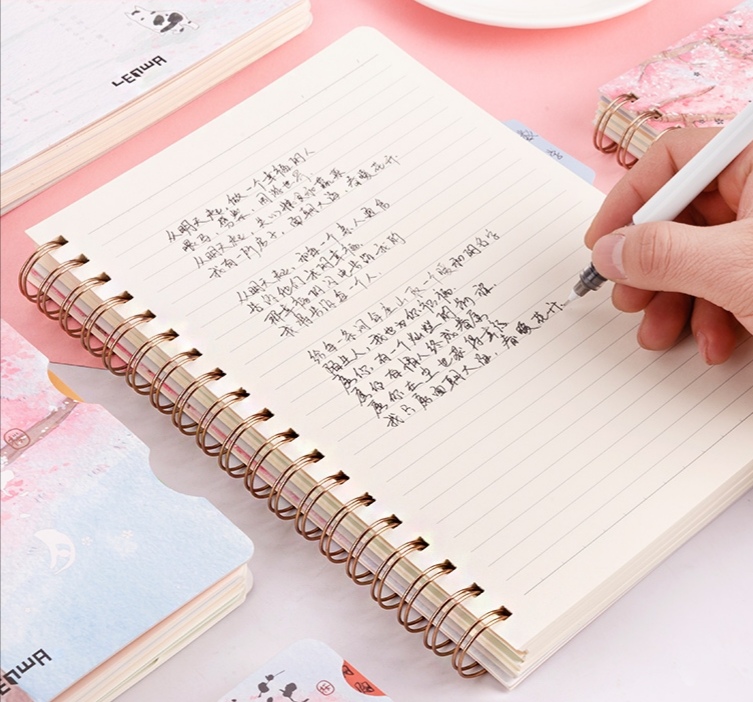 从明天起，做一个幸福的人
喂马，劈柴，周游世界
从明天起，关心粮食和蔬菜
我有一所房子，面朝大海，春暖花开
从明天起，和每一个亲人通信
告诉他们我的幸福
那幸福的闪电告诉我的
我将告诉每一个人
给每一条河每一座山取一个温暖的名字
陌生人，我也为你祝福
愿你有一个灿烂的前程
愿你有情人终成眷属
愿你在尘世获得幸福
我只愿面朝大海，春暖花开